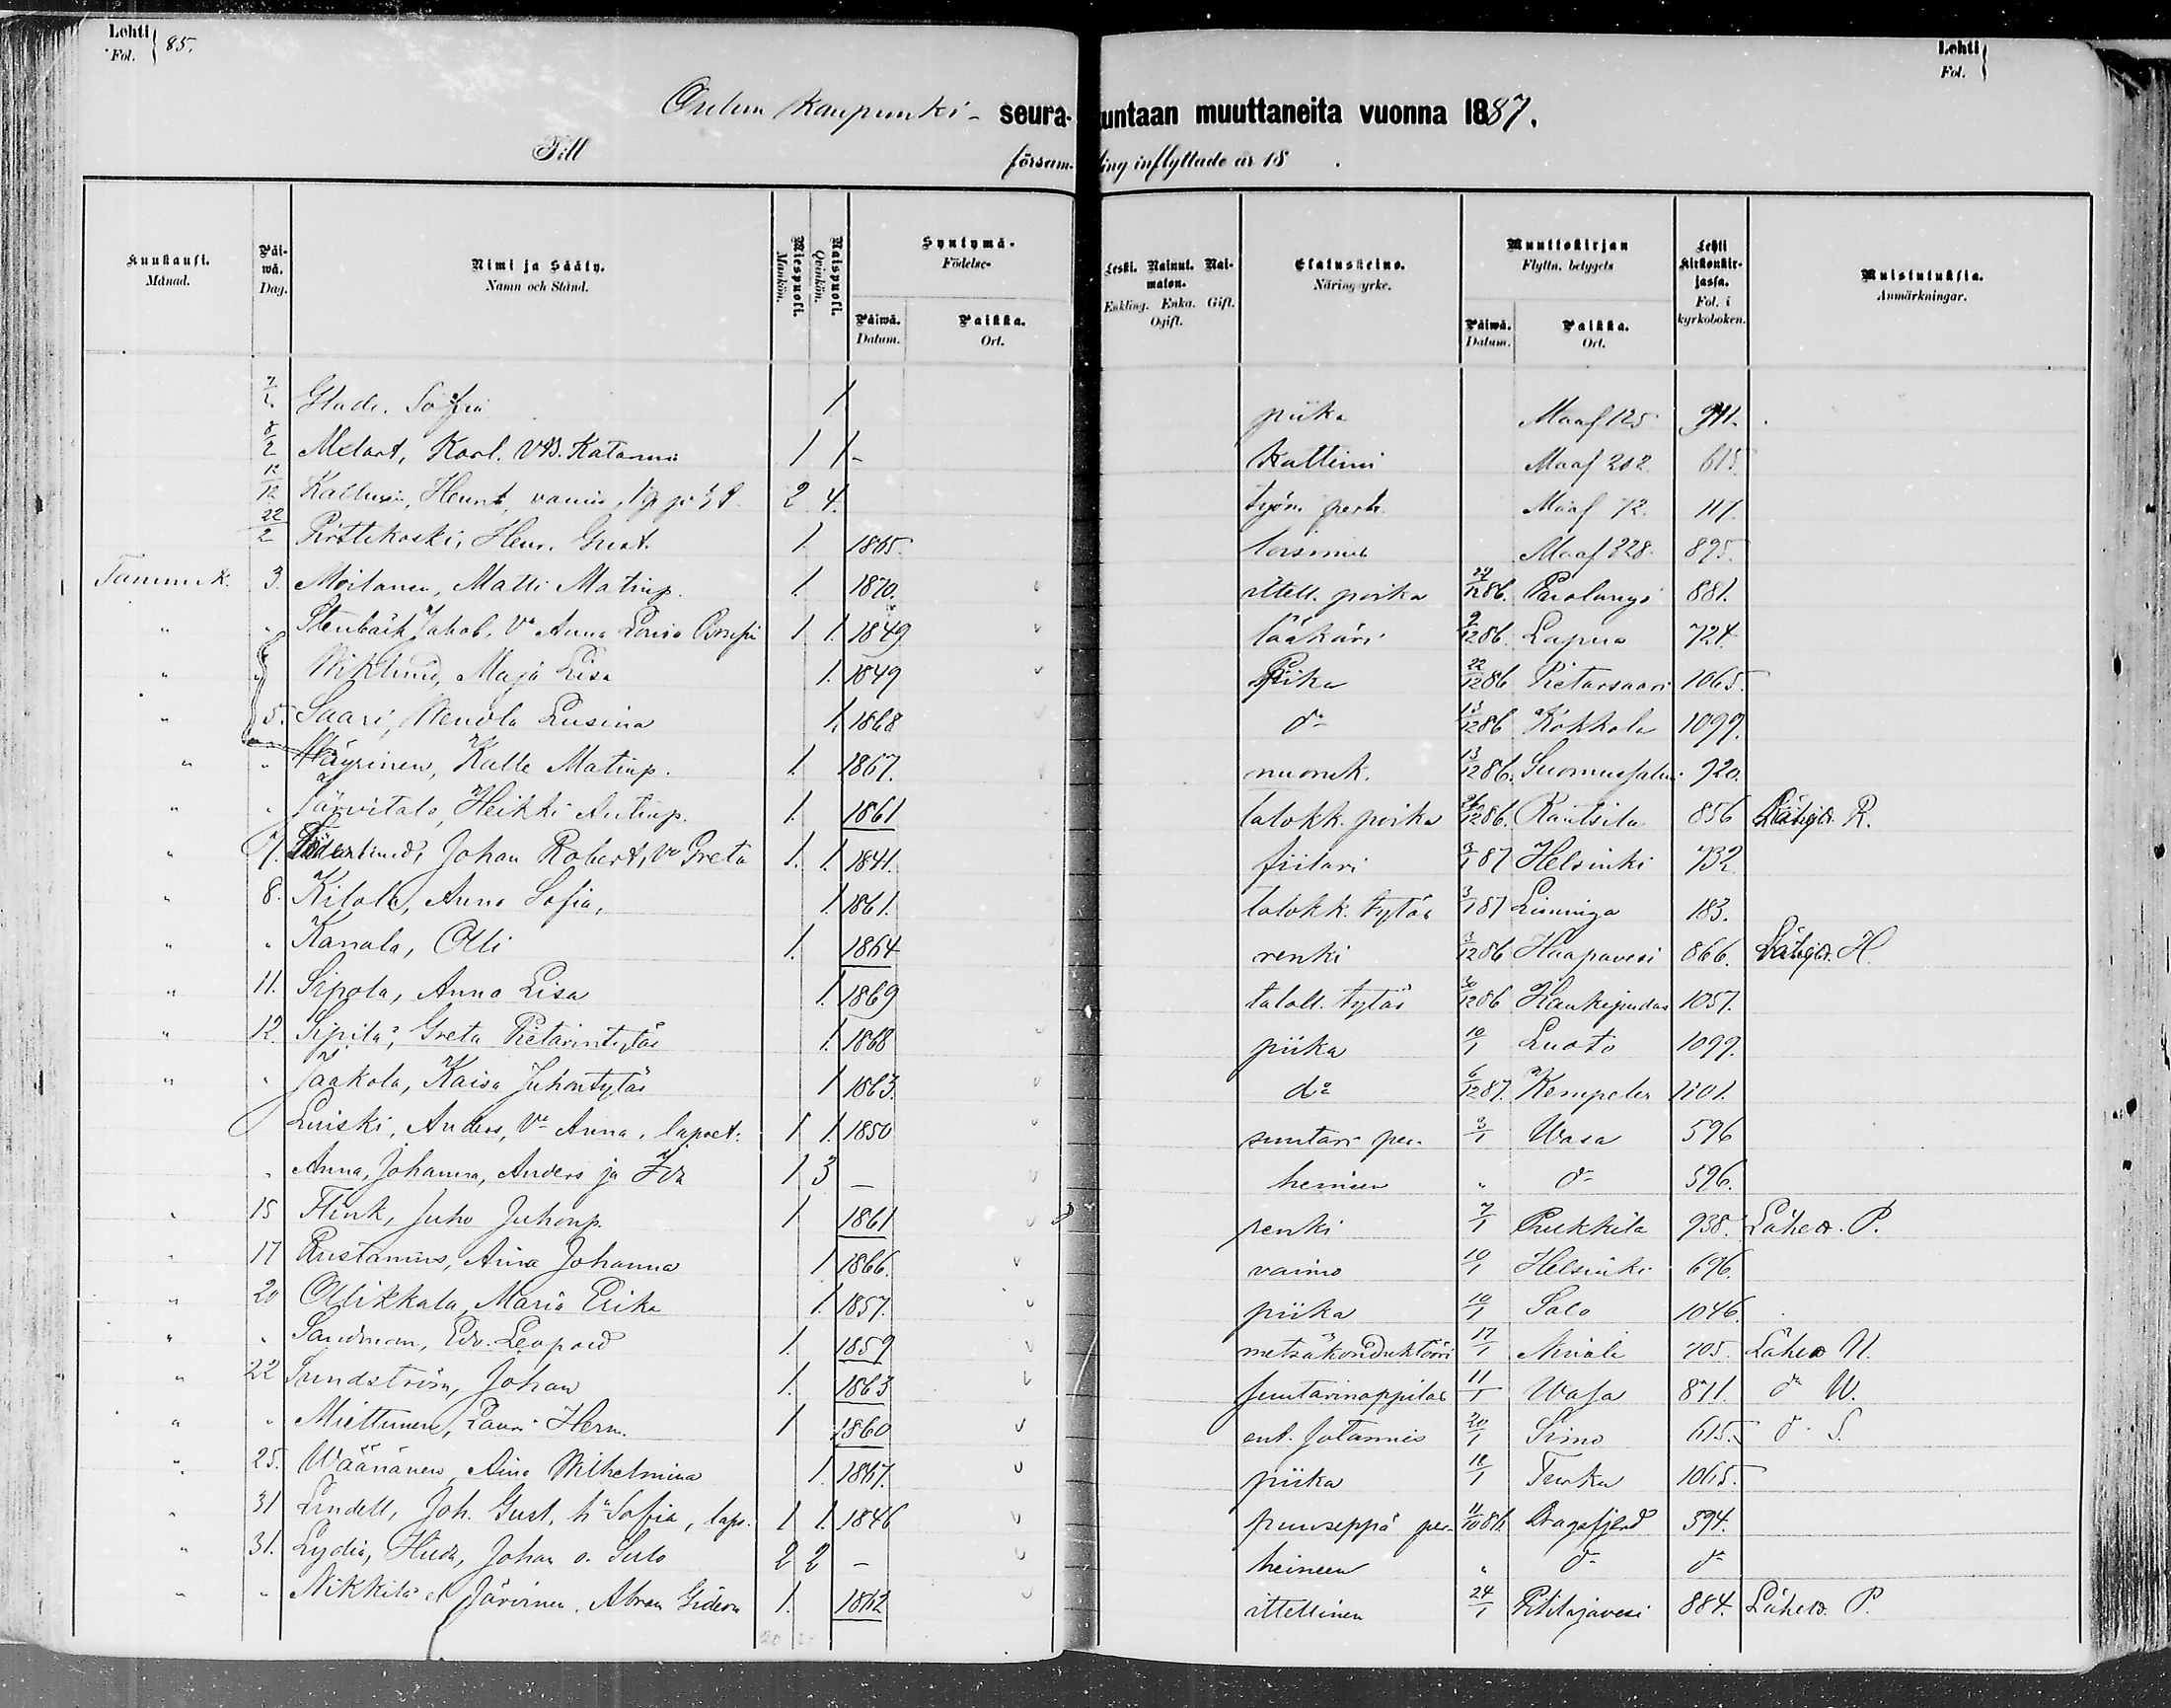 Lehti Fol. 85.
Lehti Fol.
Oulun kaupunki - seurakuntaan muuttaneita vuonna 1887.
Till försam-ling inflyttade år 18 .
Kuukausi. Månad. Päi-wä. Dag. Nimi ja Sääty. Namn och Stånd. Miespuoli. Mankön. Naispuoli. Qvinkön. Syntymä- Födelse- Päiwä. Datum. Paikka. Ort. Leski. Nainut. Nai-maton. Enkling. Enka. Gift. Ogift. Elatuskeino. Näringsyrke. Muuttokirjan Flyttn. betygets Päiwä. Datum. Paikka. Ort. Lehti Kirkonkir-jassa. Fol. i kyrkoboken. Muistutuksia. Anmärkningar.
7/2 Glade, Sofia 1 piika Maaf 125 941.
8/2 Melart, Karl. Katarina 1 1 Maaf 202. 615
12/12 Henrik, 2 4. työm. perh. Maaf 72. 117.
22/2 Henr. Gust. 1. 1865. Maaf 228. 895.
Tammik. 3. Moilanen, Matti Matinp. 1. 1870. ittell. poika 27/12 86. Paolangi 881.
" " Stenbäck Jakob, Va Anna Lovisa 1 1. 1849 lääkäri 9/12 86. Lapua 724.
" " Wiklund, Maja Lisa 1. 1849 Piika 22/12 86 Pietarsaari 1065.
" 5. Saari, Lusina 1. 1868 do 13/12 86 Kokkola 1099.
" " Häyrinen, Kalle Matinp. 1. 1867. nuoruk. 13/12 86. Suomussalmi 920.
" " Järvitalo, Heikki Antinp. 1. 1861 talokk. poika 26/12 86. Rantsila 856 R.
" 7. Söderlund, Johan Robert, Vo Greta 1. 1. 1841. 3/1 87 Helsinki 732.
" 8. Kilola, Anna Sofia, 1. 1861. talokk. tytär 3/1 87 Liminga 183.
" " Kanala, Olli 1. 1864 renki 3/12 86 Haapavesi 866. H.
" 11. Sipola, Anna Lisa 1. 1869 taloll. tytär 30/12 86 Haukipudas 1057.
" 12. Sipilä, Greta Pietarintytär 1. 1868 piika 10/1 Luoto 1099.
" " Jaakola, Kaisa Juhontytär 1 1863. do 6/12 87. Kempeles 1101.
Luiski, Anders, Va Anna, lapset: 1 1. 1850 suutari per- 3/1 Wasa 596
" Anna, Johanna, Anders ja Ida 1 3 - heineen " do 596.
" 15 Flink, Juho Juhonp. 1 1861 renki 7/1 Pulkkila 938. Läht. P.
" 17 Rustanius, Aina Johanna 1 1866. vaimo 10/1 Helsinki 696.
" 20 Ollikkala, Maria Erika 1. 1857. piika 10/1 Salo 1046.
" " Sandman, Edv. Leopold 1. 1859 metsäkonduktööri 17/1 Nivala 705. Läht. N.
" 22 Sundström, Johan 1. 1863 suutarinoppilas 11/1 Wasa 871. do W.
" " Miettunen, Lauri Herm. 1 1860 ent. sotamies 20/1 Simo 615. do S.
" 25. Wäänänen, Aina Wilhelmina 1. 1867. piika 18/1 Turku 1065.
" 31 Lindell, Joh. Gust. ho Sofia, laps. 1 1. 1846 puuseppä per- 11/10 86. Dragsfjerd 594.
" 31. Lydia, Hilda, Johan o. Sulo 2 2 - heineen " do do
" " Nikkilä l. Järvinen, Abram Gideon 1. 1862 ittellinen 24/1 Pihlajavesi 884. Läht. P.